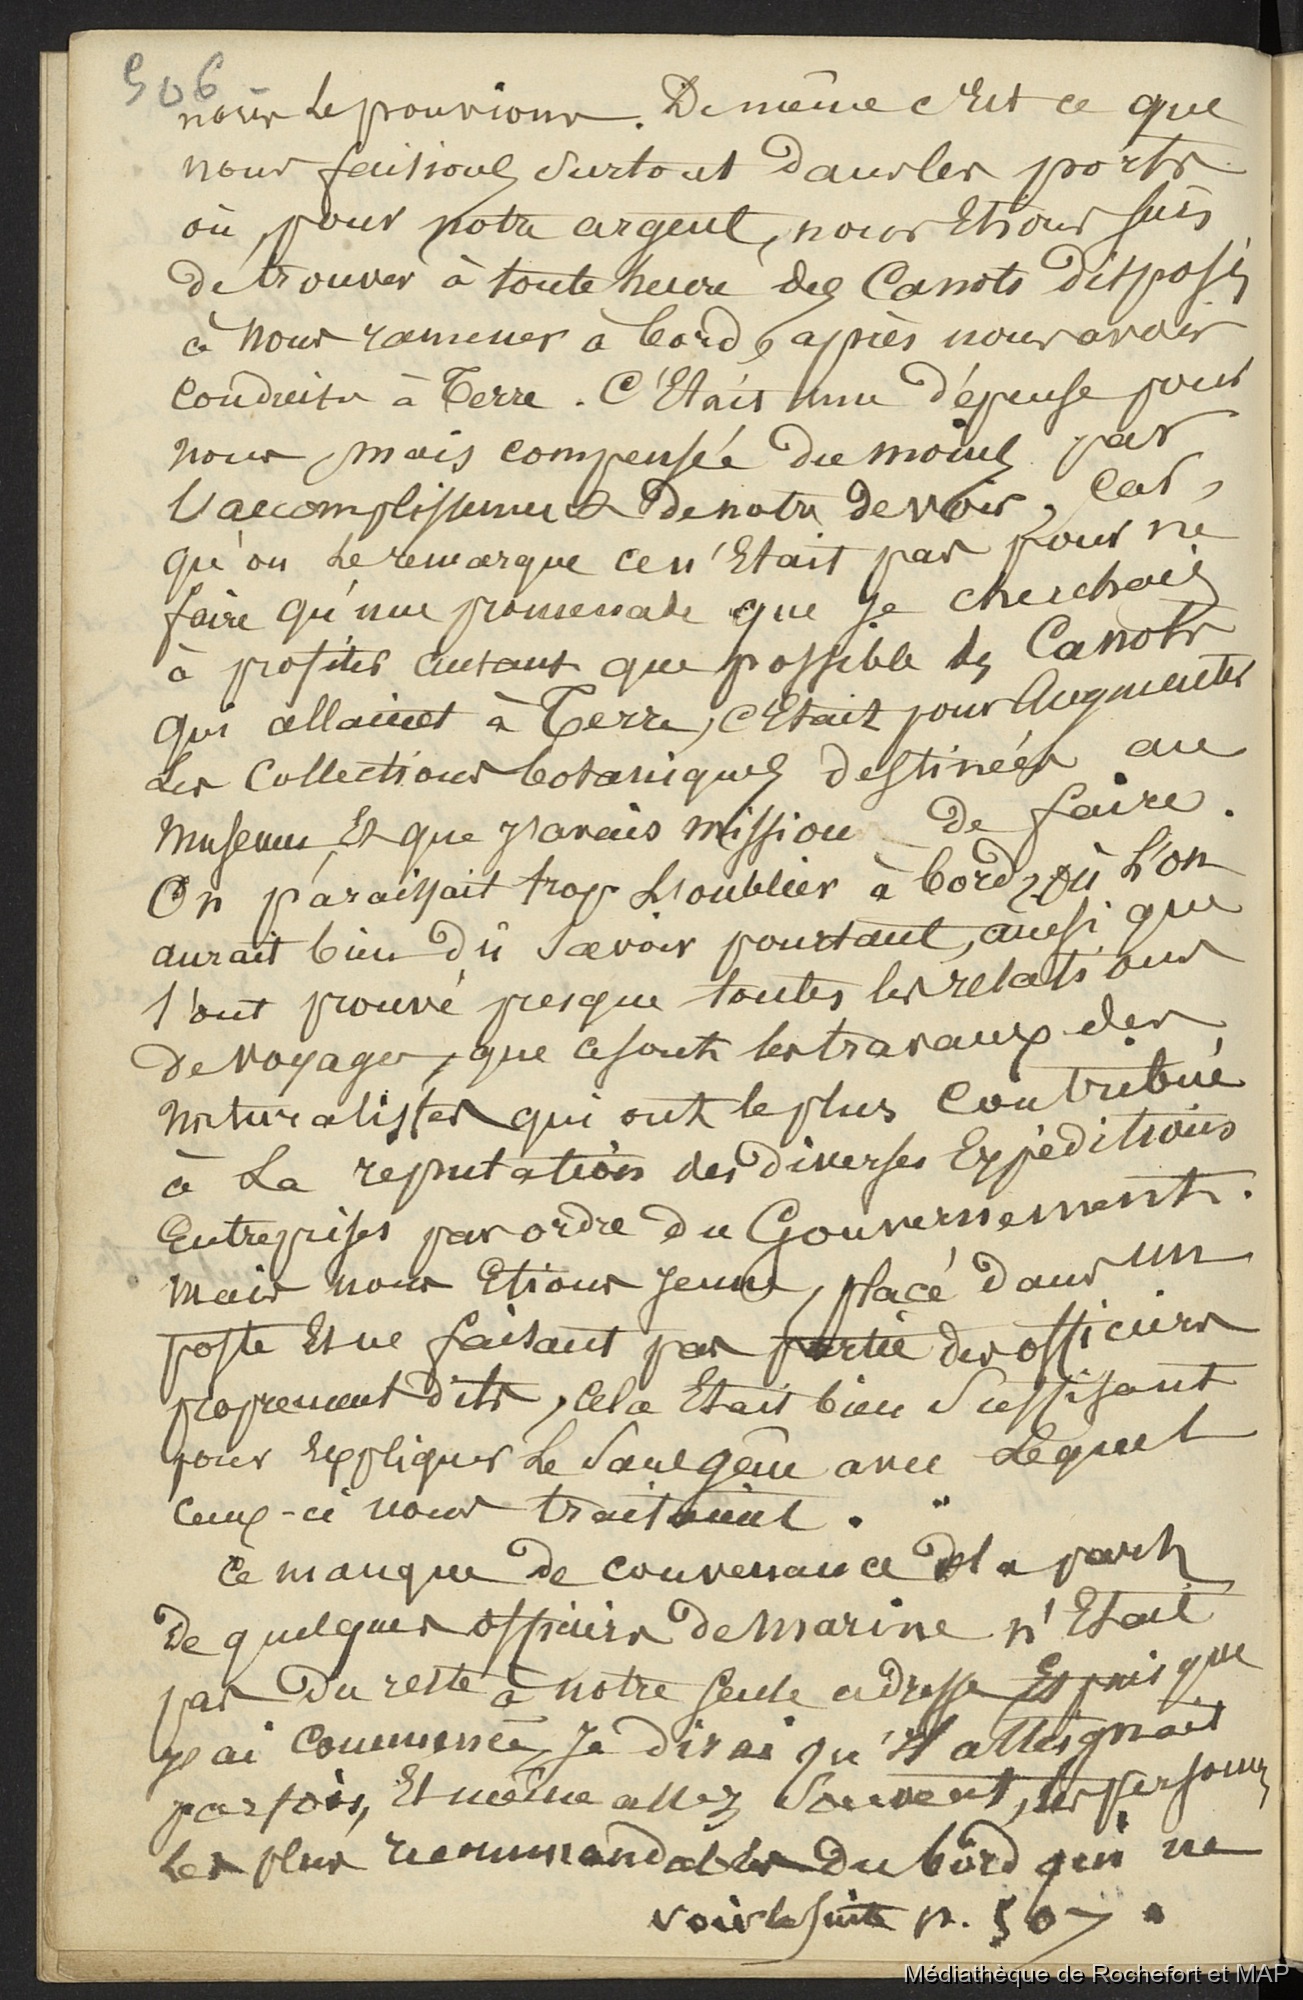 506 -
nous le pouvions. De même c'Est ce que
nous faisions surtout dans les ports
où, pour notre argent, nous Etions sûrs
de trouver à toute heure des Canots disposés
à nous ramener à bord, après nous avoir
conduits à Terre. C'Etait une dépense pour
nous, mais compensée du moins par
l'accomplissement de notre devoir, car,
qu'on le remarque ce n'Etait pas pour ne
faire qu'une promenade que je cherchais
à profiter autant que possible des Canots
qui allaient à Terre, c'Etait pour Augmenter
Les Collections botaniques destinées au
museum Et que j'avais mission de faire.
On paraissait trop L'oublier à bord, où L'on
aurait bien dû savoir pourtant, ainsi que
l'ont prouvé presque toutes les relations
de voyages, que ce sont les travaux des
naturalistes qui ont le plus contribué
à La reputation des diverses Expéditions
Entreprises par ordre du Gouvernement.
mais nous Etions jeune, placé dans un
poste Et ne faisant pas partie des officiers
proprement dits, cela Etait bien suffisant
pour Expliquer Le sans gêne avec Lequel
ceux-ci nous traitaient. "
Ce manque de convenance de la part
de quelques officiers de marine n'Etait
pas du reste à notre seule adresse Et puisque
j'ai commencé, Je dirai qu'il atteignait
parfois, Et même assez souvent, les personnes
Les plus recommandables du bord qui ne
voir la suite p. 507.
Médiathèque de Rochefort et MAP